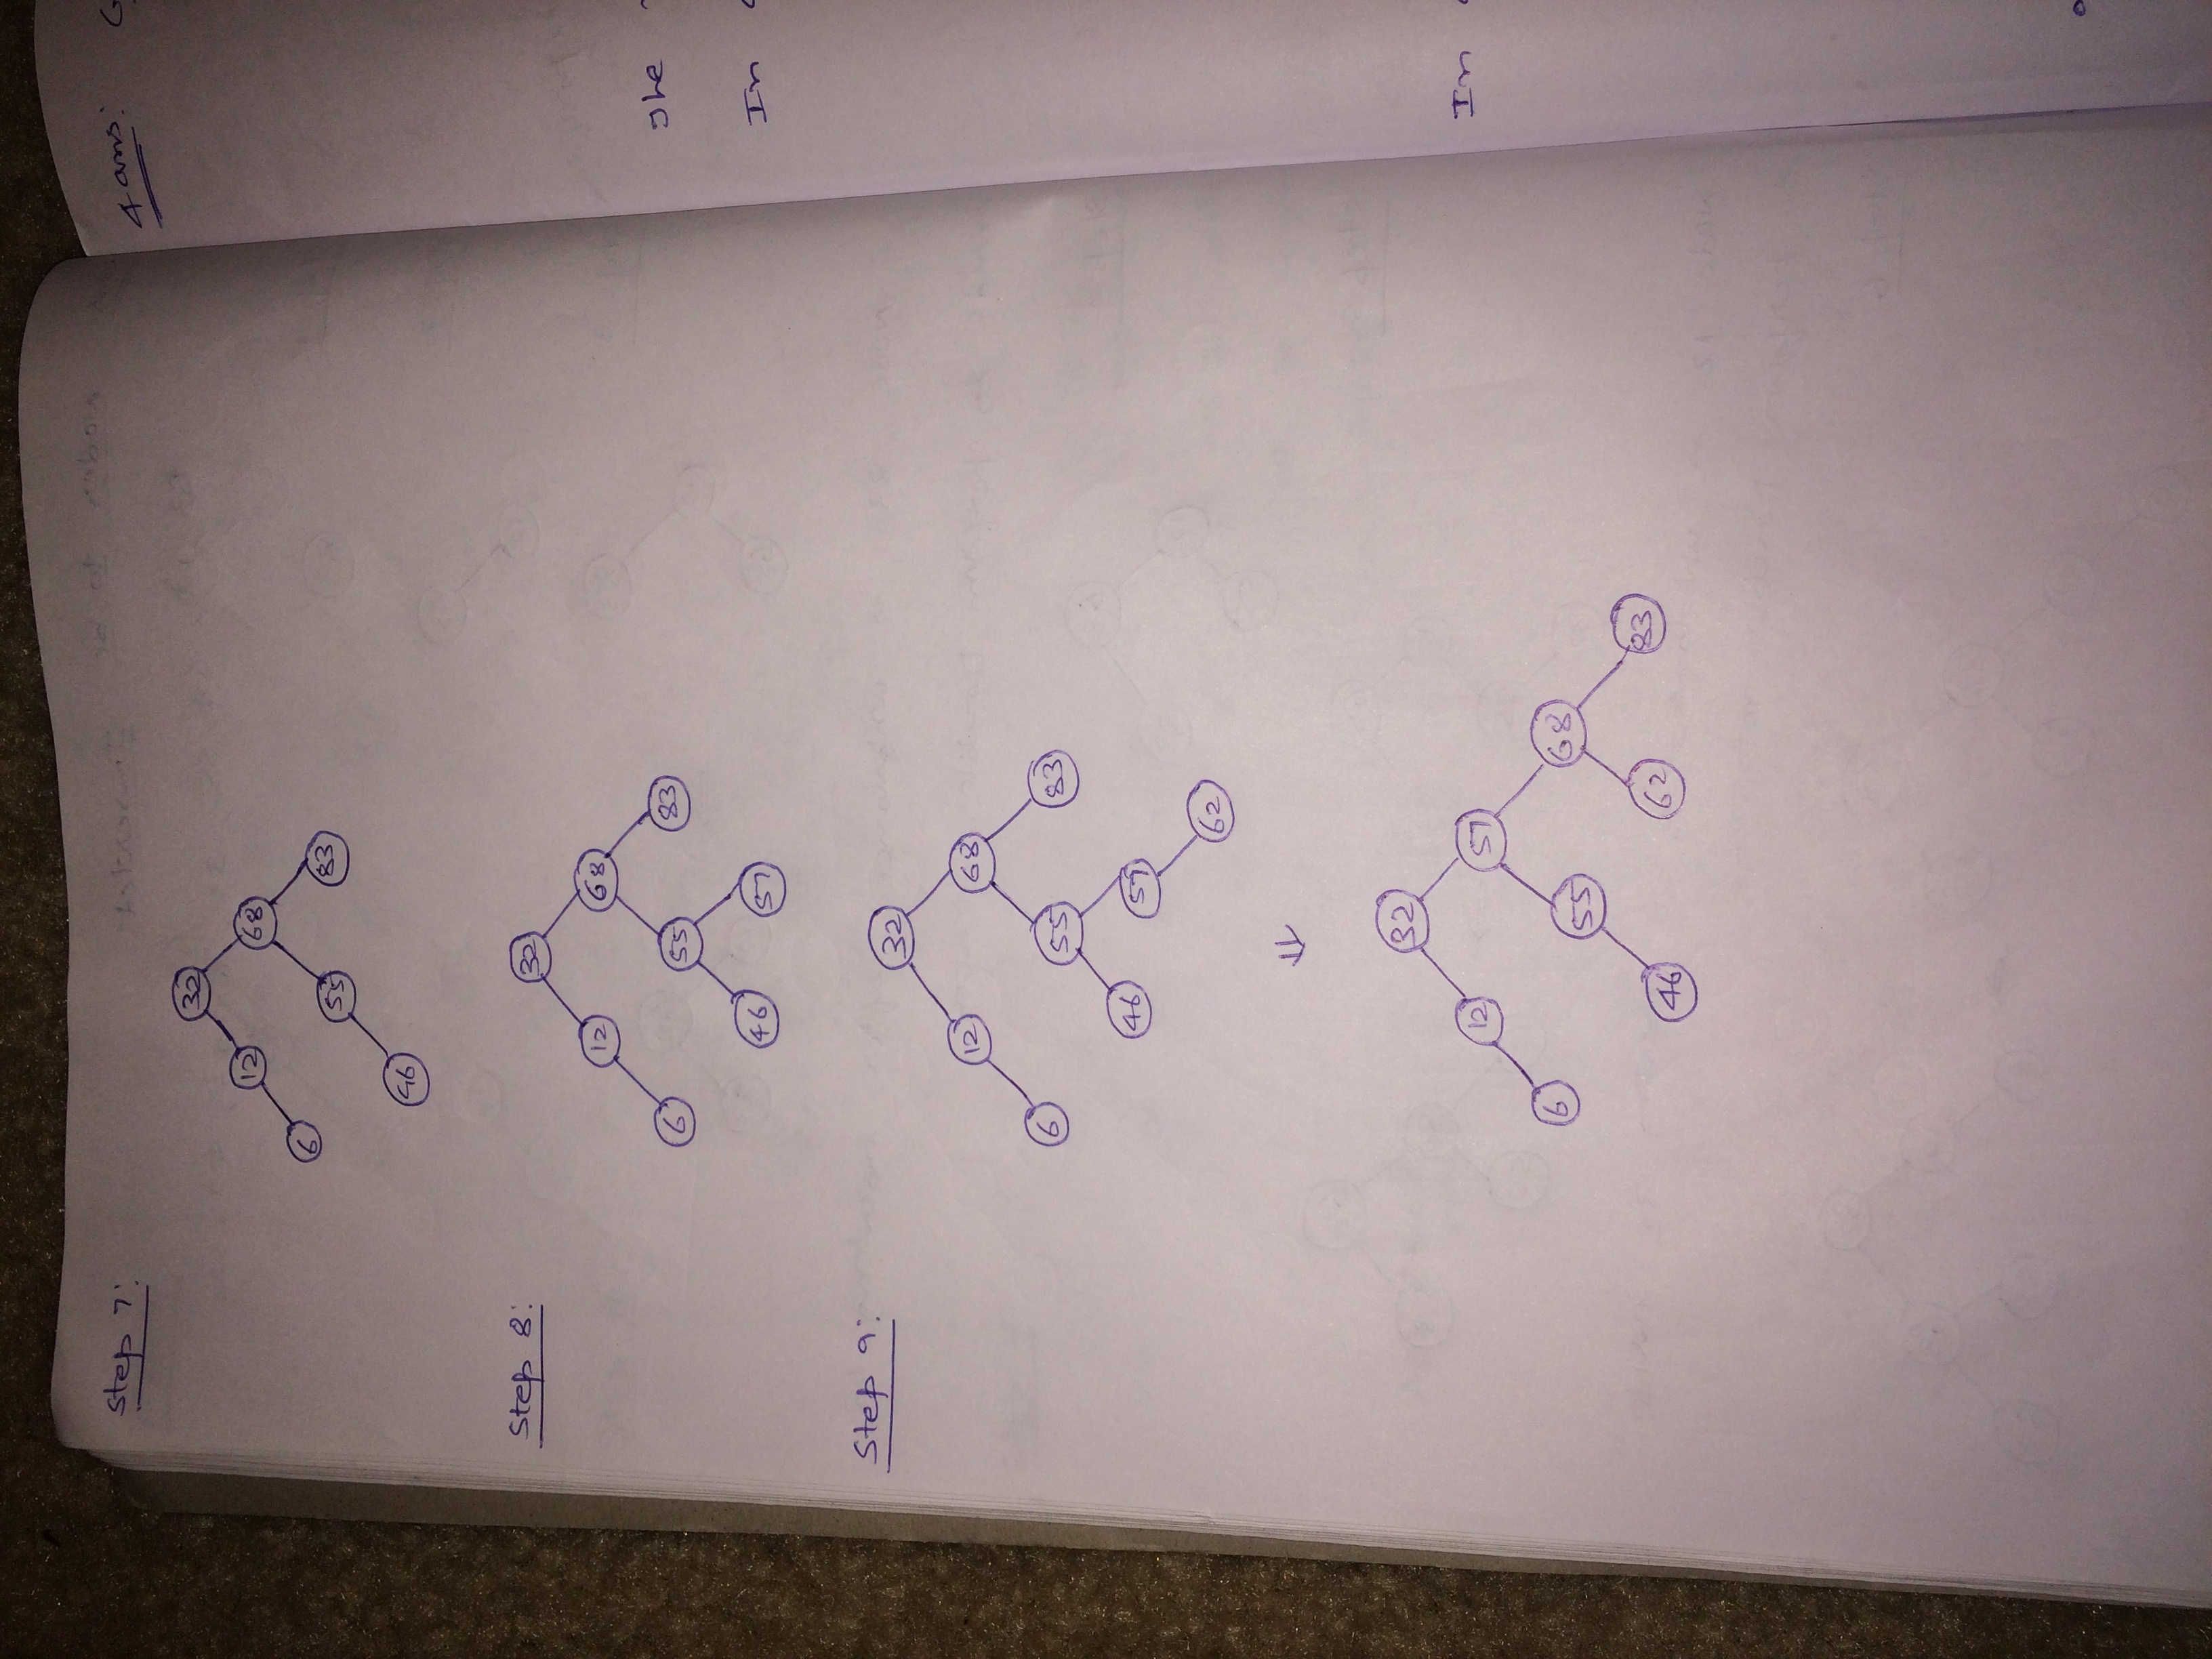 Step 7:
32
12 68
6 55 83
46
Step 8:
32
12 68
6 55 83
46 57
Step 9:
32
12 68
6 55 83
46 57
62
⇓
32
12 57
6 55 68
46 62 83
4 ans:
The
In
In